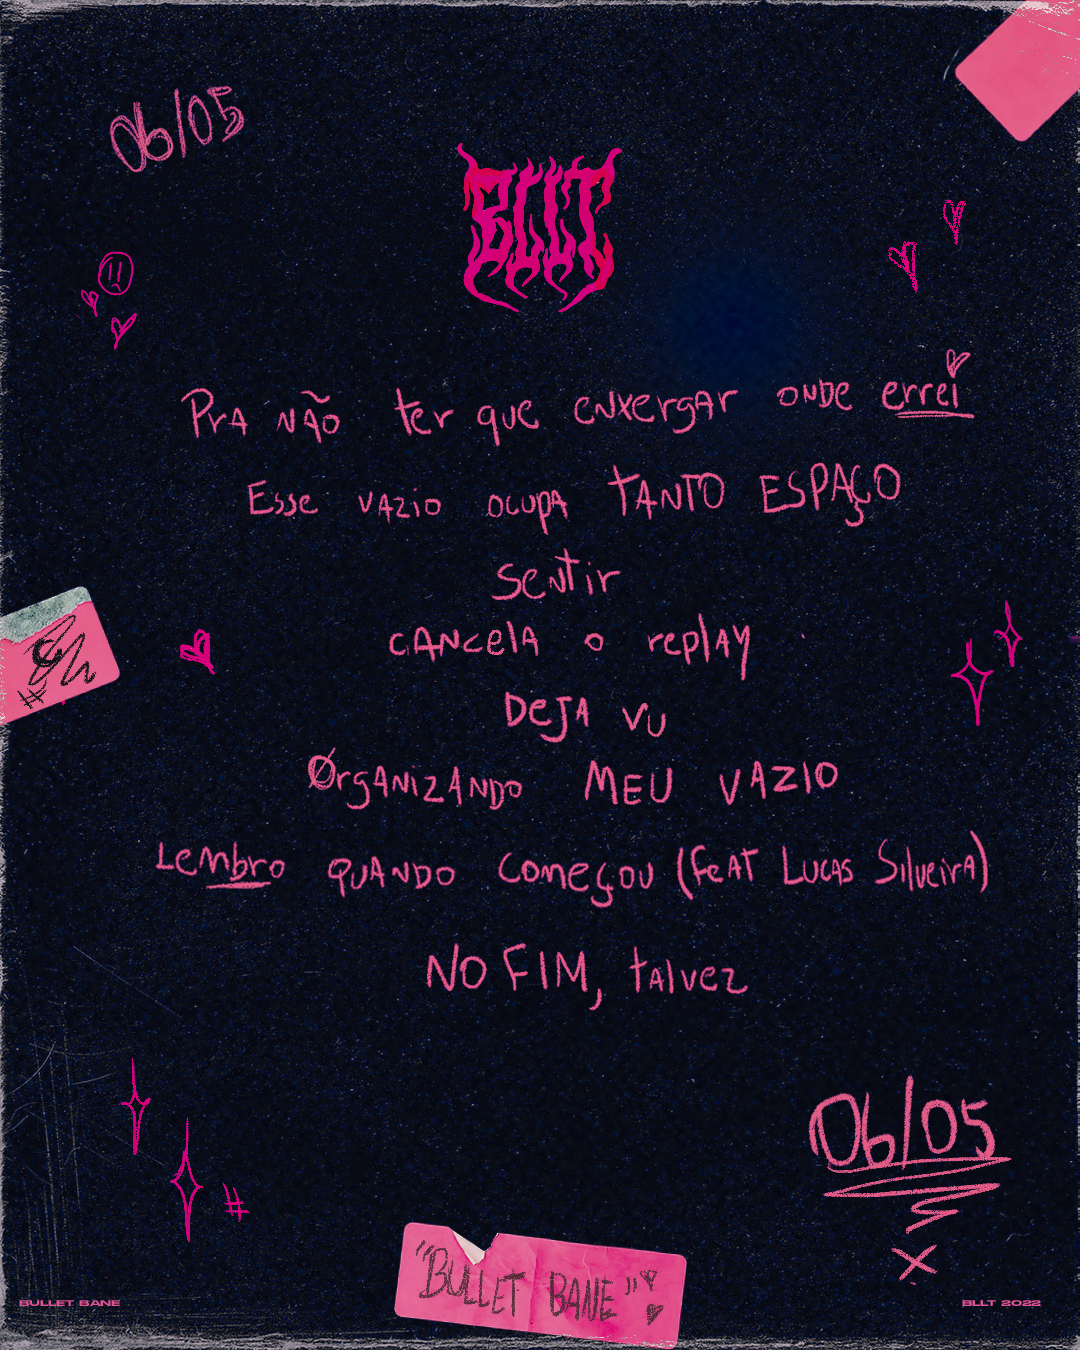 06/05
BLLT
!!
Pra não ter que enxergar onde errei
Esse vazio ocupa TANTO ESPAÇO
Sentir
cancela o replay
Deja vu
Ørganizando MEU VAZIO
Lembro quando começou (feat Lucas Silveira)
NO FIM, talvez
#
06/05
#
X
"BULLET BANE"
BULLET BANE
BLLT 2022